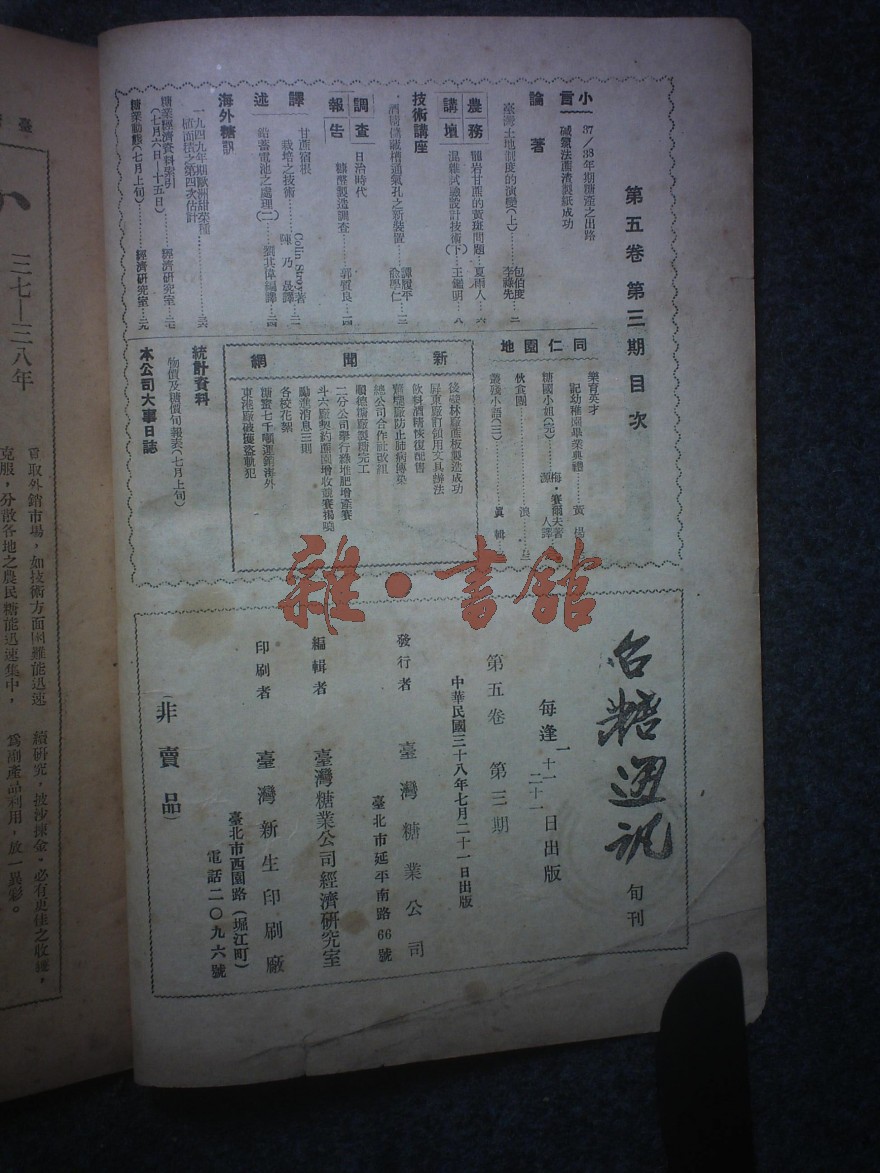 第五卷第三期目次
小言
37／38年期糖產之出路
碱氯法蔗渣製紙成功
論著
臺灣土地制度的演變(上)
包伯度
李祿先
農務講壇
龍岩甘蔗的黃斑問題……夏雨人…六
田間試驗設計技術(下)…王鑑明…八
技術講座
酒精儲藏槽通氣孔之新裝置
譚嚴平
徐學仁
調查報告
日治時代
糖廍製造調查……郭質良…一四
譯述
甘蔗宿根
栽培之技術
陳乃晟譯
鉛蓄電池之處理(二)……劉其偉編譯…二四
海外糖訊
一九四九年期歐洲甜菜種
植面積之第四次估計
糖業經濟資料索引
(七月六日—十五日)
經濟研究室…二七
糖業動態(七月上旬)……經濟研究室…二九
同仁園地
樂育英才
記幼稚園畢業典禮……黃楊
糖國小姐(完)
梅·賽爾夫著
源人譯
伙食團……浪
叢殘小語(三)……眞輯
新聞網
後壁林廠蔗板製造成功
屛東廠訂領用文具辦法
飲料酒精恢復配售
廠防止肺病傳染
總公司合作社改組
順德糖廠製糖完工
二分公司舉行綠堆肥增產賽
斗六廠契約蔗園增收競賽揭曉
勵進消息三則
各校花絮
糖蜜七千噸運銷海外
東港廠破獲盜軌犯
統計資料
物價及糖價旬報表(七月上旬)
本公司大事日誌
台糖通訊
旬刊
每逢一十一二十一日出版
第五卷 第三期
中華民國三十八年七月二十一日出版
發行者 臺灣糖業公司
臺北市延平南路66號
編輯者 臺灣糖業公司經濟研究室
印刷者 臺灣新生印刷廠
臺北市西園路(堀江町)
電話二〇九六號
(非賣品)
雜·書館
三七—三八年
取外銷市場，如技術方面困難能迅速
克服，分散各地之農民糖能迅速集中，
續研究，披沙揀金，必有更佳之收穫，
爲副產品利用，放一異彩。